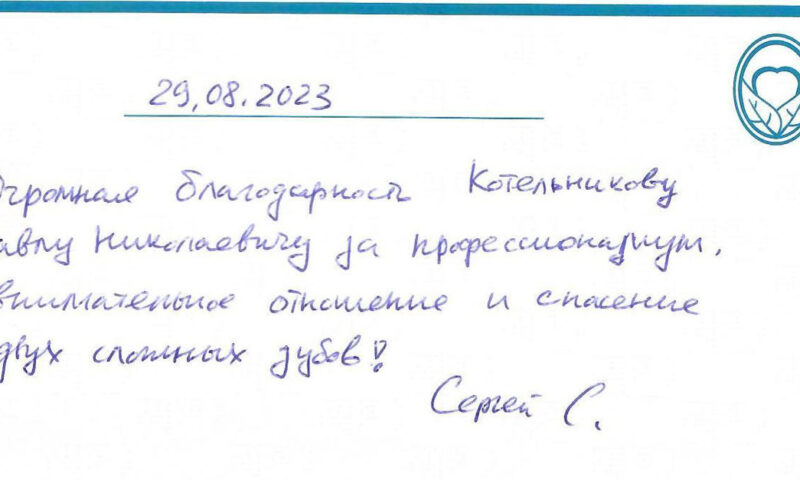 29.08.2023
Огромная благодарность Котельникову
авлу Николаевичу за профессионализм,
внимательное отношение и спасение
двух сложных зубов!
Сергей С.